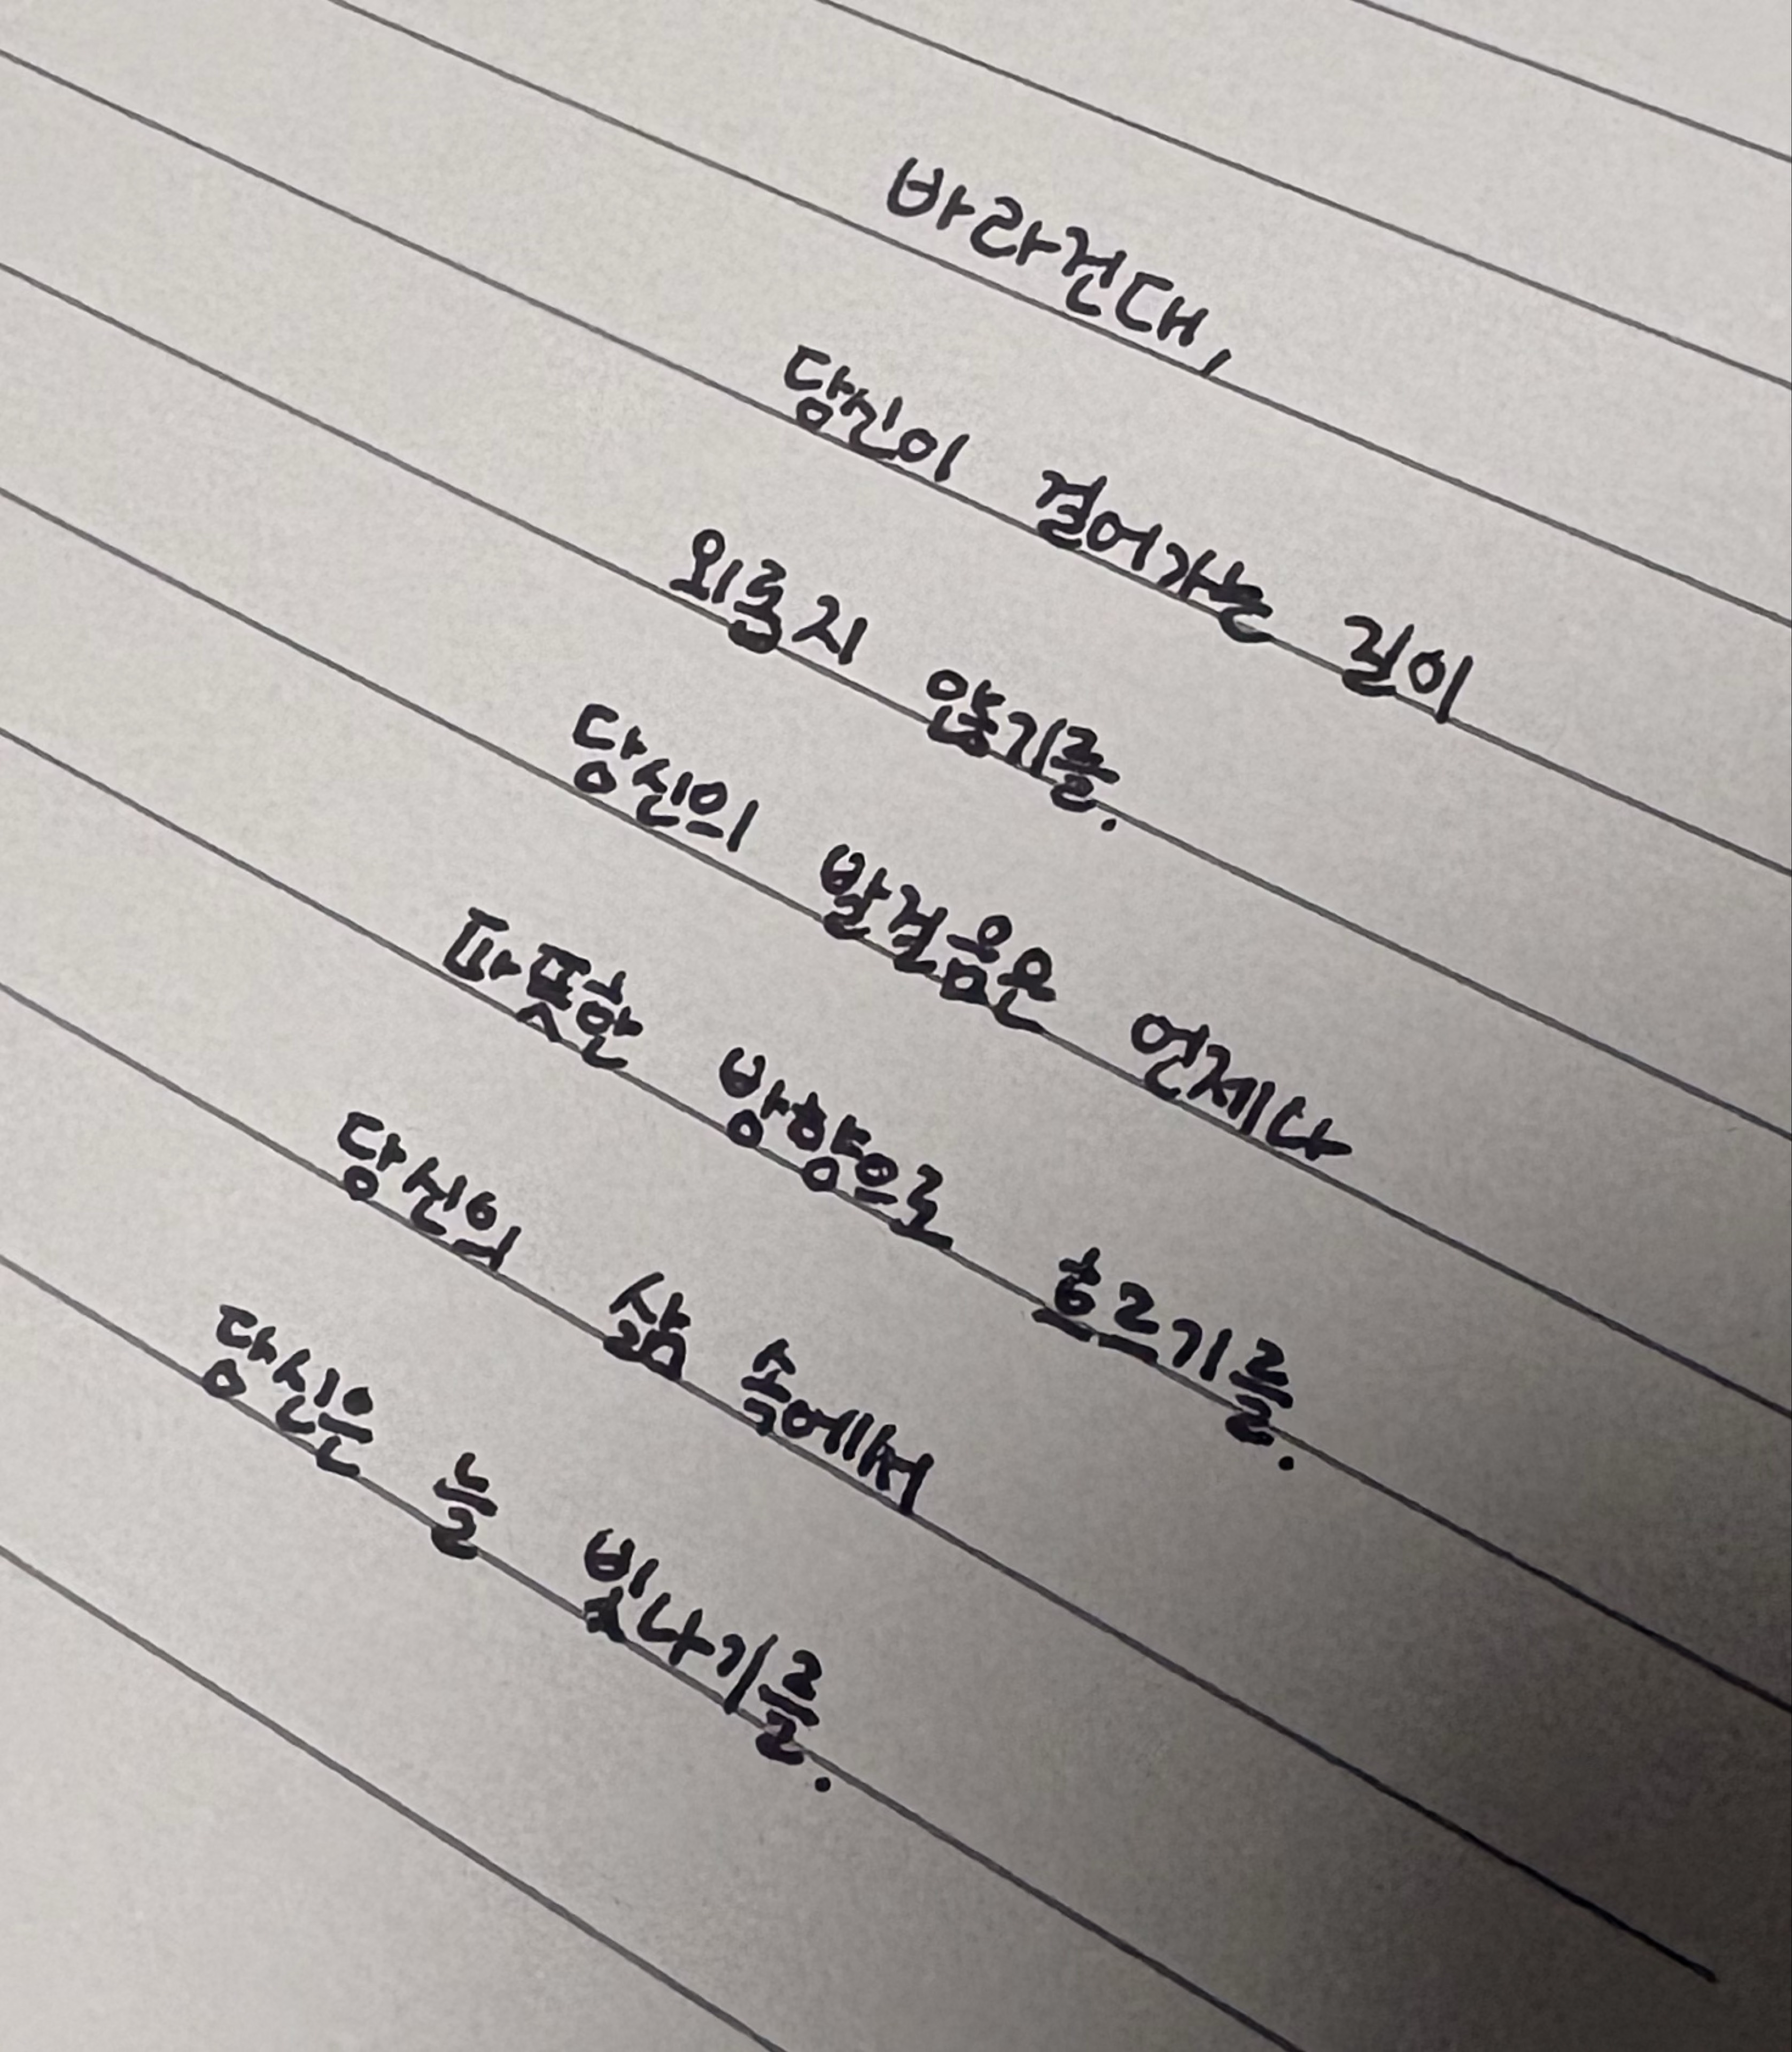 바라건대,
당신이 걸어가는 길이
외롭지 않기를.
당신의 발걸음은 언제나
따뜻한 방향으로 흐르기를.
당신의 삶 속에서
당신은 늘 빛나기를.